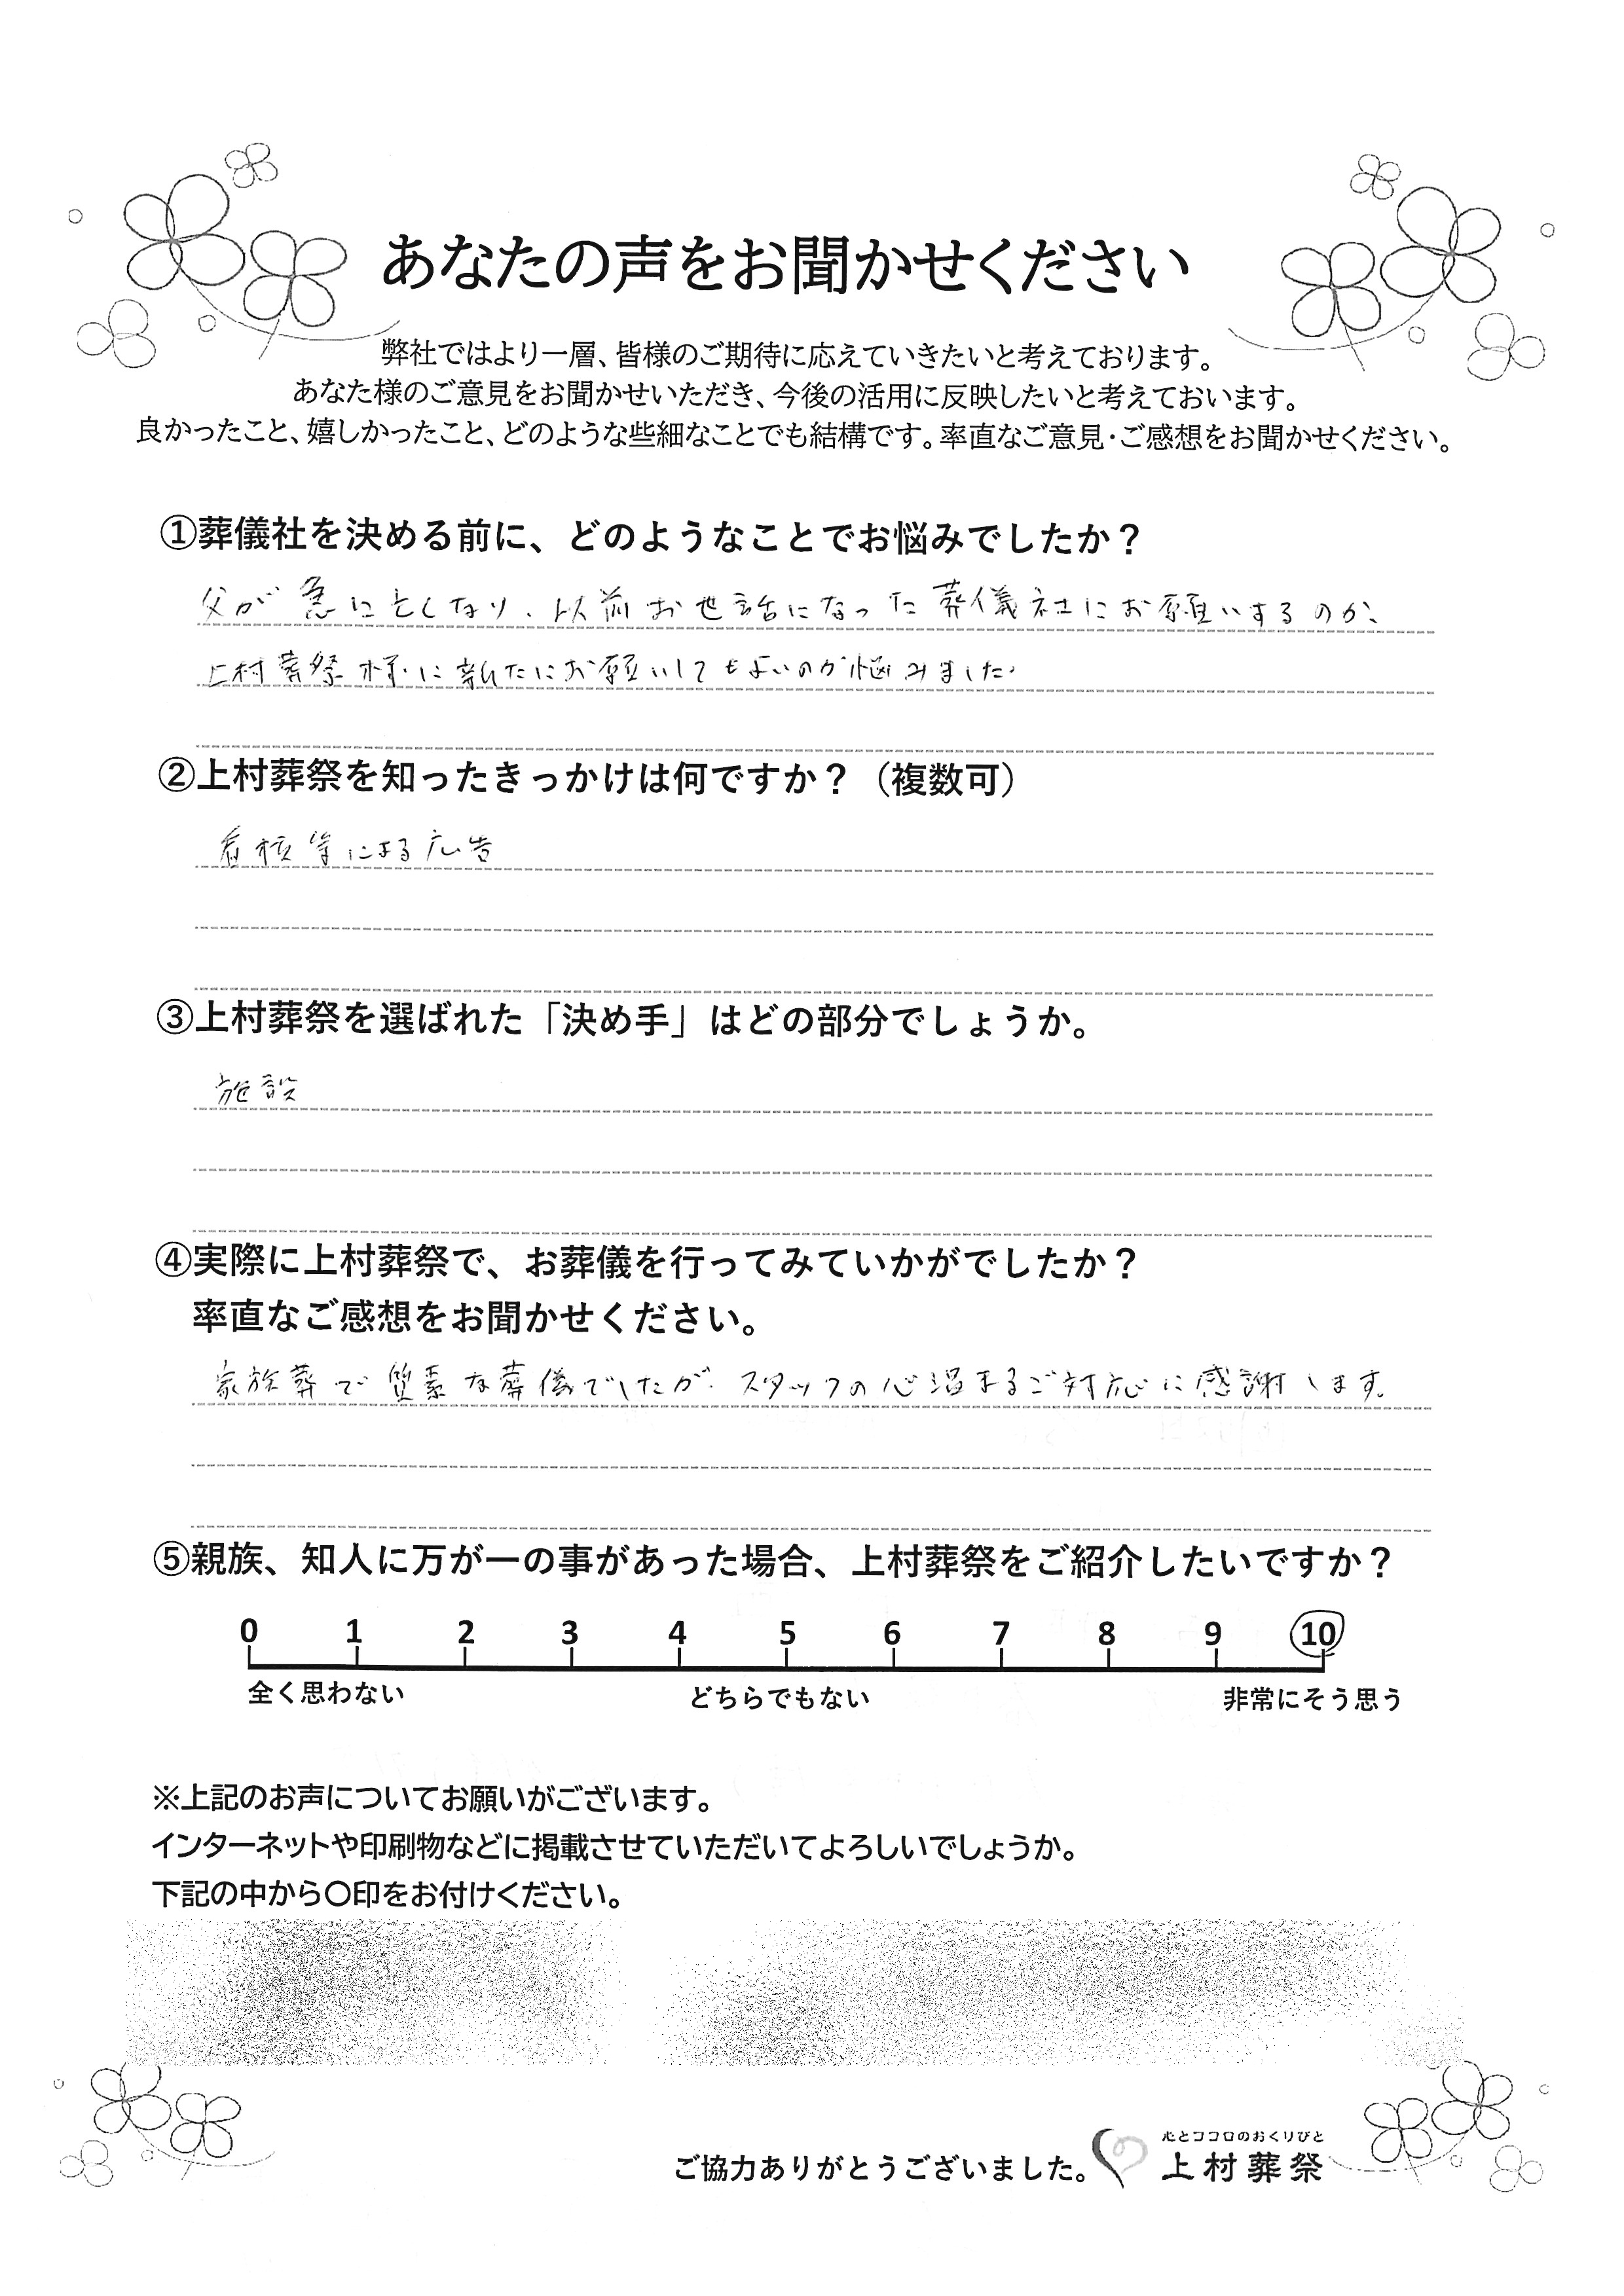 あなたの声をお聞かせください
弊社ではより一層、皆様のご期待に応えていきたいと考えております。
あなた様のご意見をお聞かせいただき、今後の活用に反映したいと考えておいます。
良かったこと、嬉しかったこと、どのような些細なことでも結構です。率直なご意見・ご感想をお聞かせください。
①葬儀社を決める前に、どのようなことでお悩みでしたか？
父が急に亡くなり、以前お世話になった葬儀社にお願いするのか、
上村葬祭様に新たにお願いしても良いのか悩みました。
②上村葬祭を知ったきっかけは何ですか？（複数可）
看板等による広告
③上村葬祭を選ばれた「決め手」はどの部分でしょうか。
施設
④実際に上村葬祭で、お葬儀を行ってみていかがでしたか？
率直なご感想をお聞かせください。
家族葬で質素な葬儀でしたが、スタッフの心温まるご対応に感謝します。
⑤親族、知人に万が一の事があった場合、上村葬祭をご紹介したいですか？
0 1 2 3 4 5 6 7 8 9 10
全く思わない どちらでもない 非常にそう思う
※上記のお声についてお願いがございます。
インターネットや印刷物などに掲載させていただいてよろしいでしょうか。
下記の中から〇印をお付けください。
心とココロのおくりびと
ご協力ありがとうございました。 上村葬祭